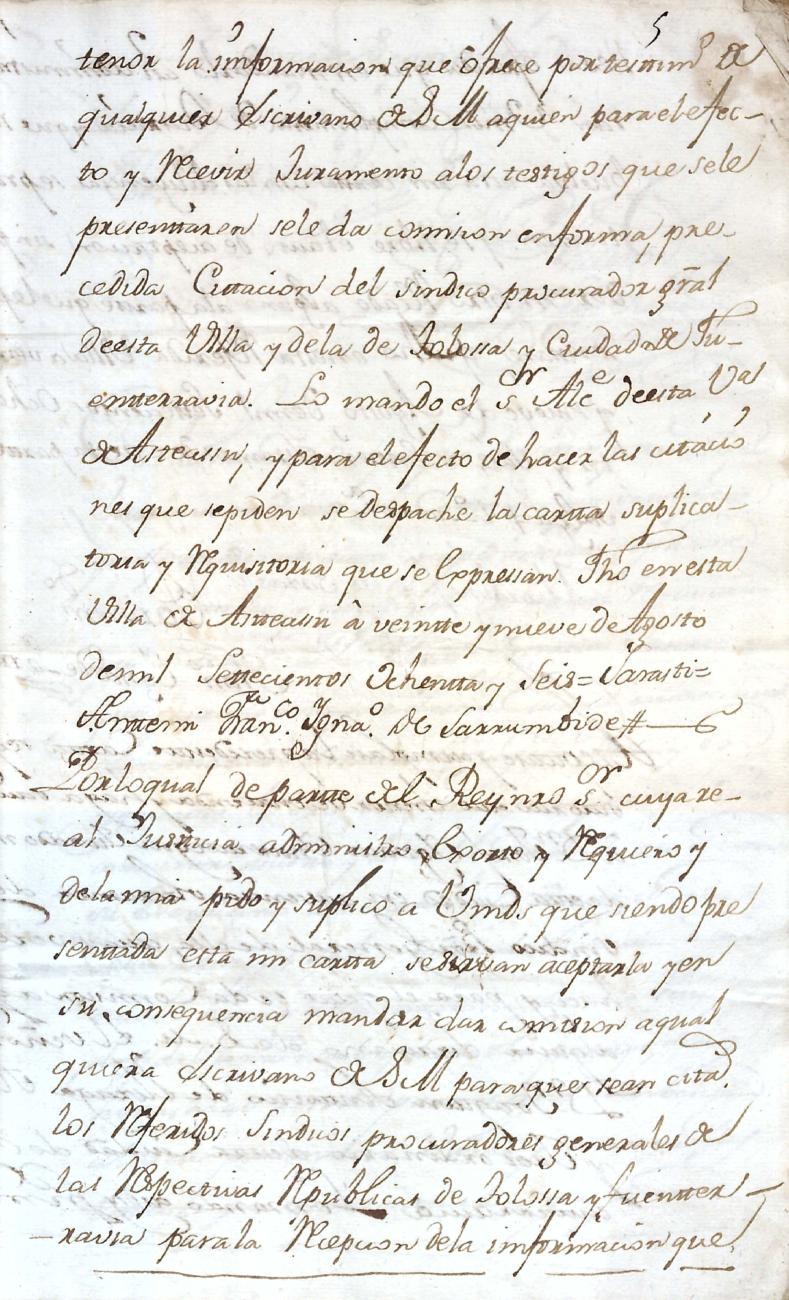 5
tenor la informacion que ofrece por testim.º de
qualquier Escrivano de S M aquien para el efec-
to y Rcevir Juramento alos testigos que sele
presenttaren sele da comision enforma, pre-
cedida Cittacion del sindico procurador gral
deesta Villa y dela de Tolossa y Ciudad de Fu-
entterravia. Lo mando el s.or Alc.e deesta V.a
de Asteasu, y para el efecto de hacer las citacio
nes que sepiden se Despache la cartta suplica-
toria y Rquisitoria que se Expressan. Fho en esta
Villa de Astteasu à veintte y nueve de Agosto
demil Settecientos Ochentta y Seis= Sarasti=
Anttemi Fran.co Ygna.º de Sarrumbide
Porloqual de partte del Rey nro s.or cuya re-
al Justicia administro Exorto y Rquiero y
dela mia pido y suplico a Vmds que siendo pre
senttada esta mi cartta se sirvan aceptarla y en
su consequencia mandar dar comision aqual
quiera Escrivano de S M para que sean citad.
los Rferidos Sindicos procuradores generales de
las Rspectivas Rpublicas de Tolossa y fuentter-
ravia para la Rcepcion dela informacion que